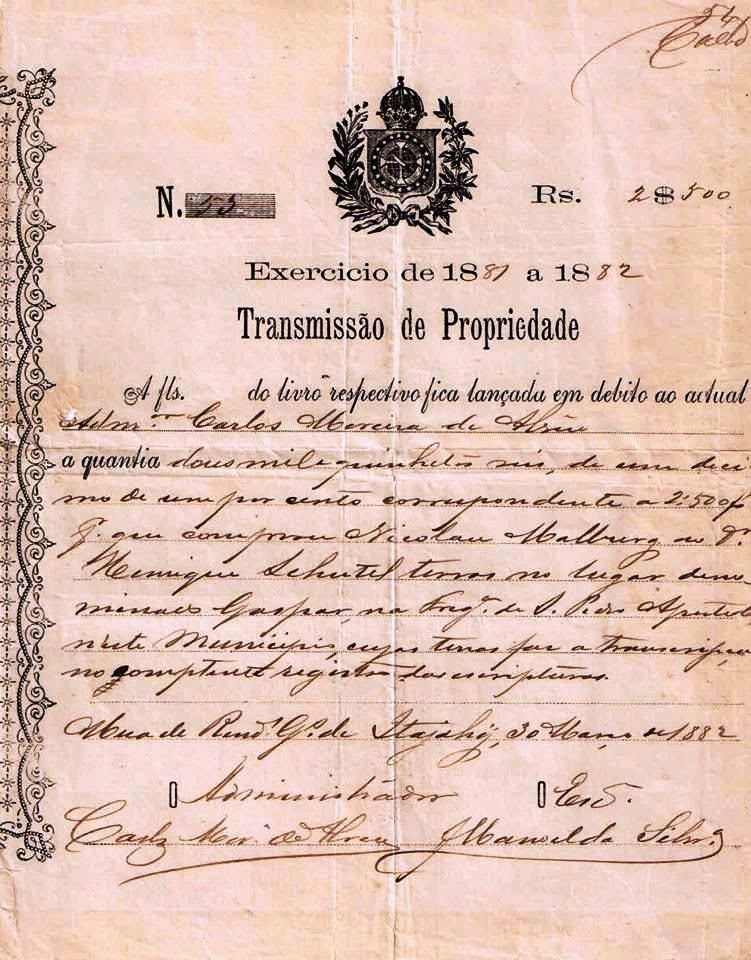 54
N. 53
Rs. 2$500
Exercicio de 1881 a 1882
Transmissão de Propriedade
A fls. do livro respectivo fica lançada em debito ao actual
Admor. Carlos Moreira de Abreu
a quantia dous mil e quinhetos reis, de um deci
mo de um por cento correspondente a 2:500$
pr. que comprou Nicolau Malburg ao Dr.
Henrique Schutel terras no lugar deno
minado Gaspar, na Fregª. de S. Pedro Apostolo
neste Municipio, cujas terras faz a transcripção
no competente registro das escripturas.
Mesa de Rendª. Gs. de Itajahy, 30 Março de 1882
O Administrador O Esc.
Carlos Mor. de Abreu J Man da Silva